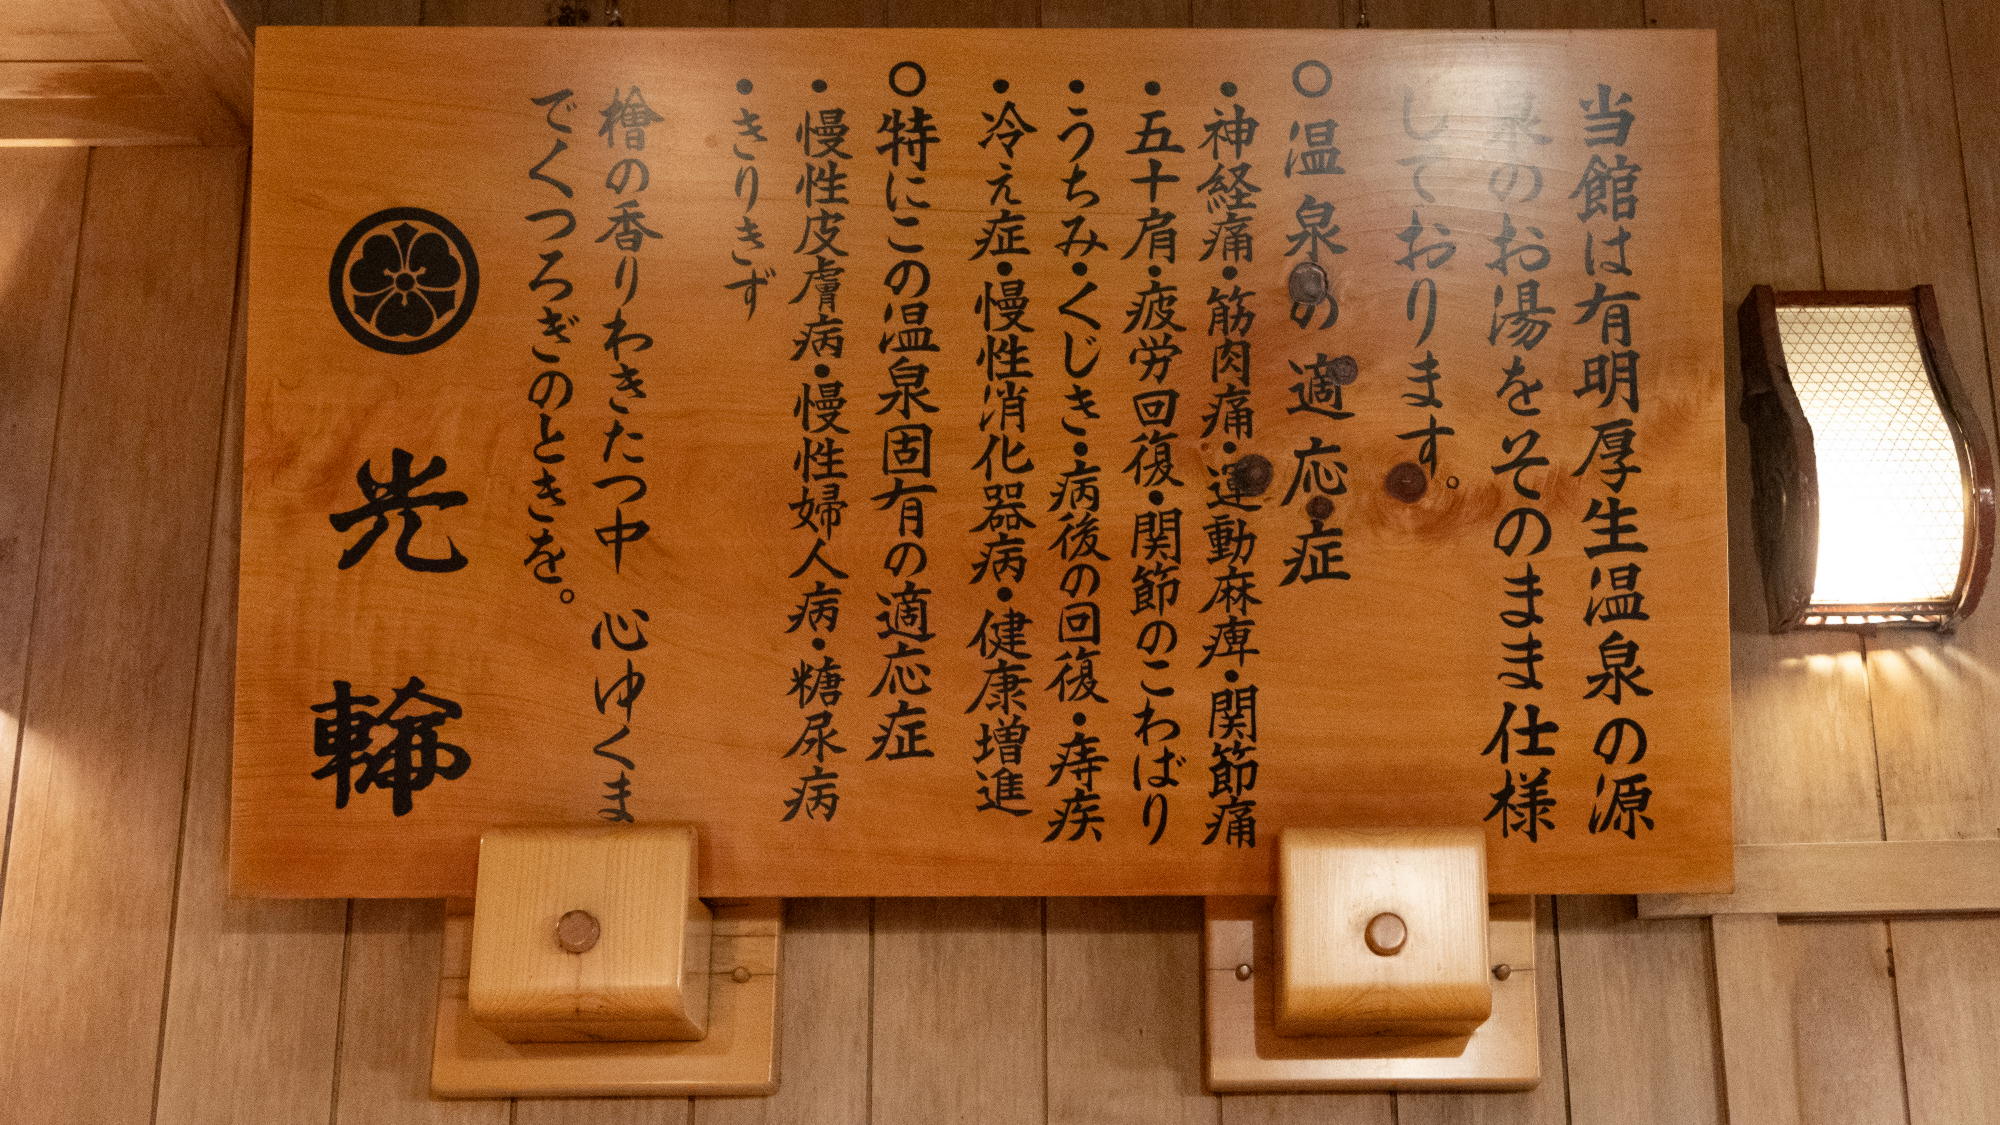 当館は有明厚生温泉の源
泉のお湯をそのまま仕様
しております。
○温泉の適応症
・神経痛・筋肉痛・運動麻痺・関節痛
・五十肩・疲労回復・関節のこわばり
・うちみ・くじき・病後の回復・痔疾
・冷え症・慢性消化器病・健康増進
○特にこの温泉固有の適応症
・慢性皮膚病・慢性婦人病・糖尿病
・きりきず
檜の香りわきたつ中 心ゆくま
でくつろぎのときを。
光輪